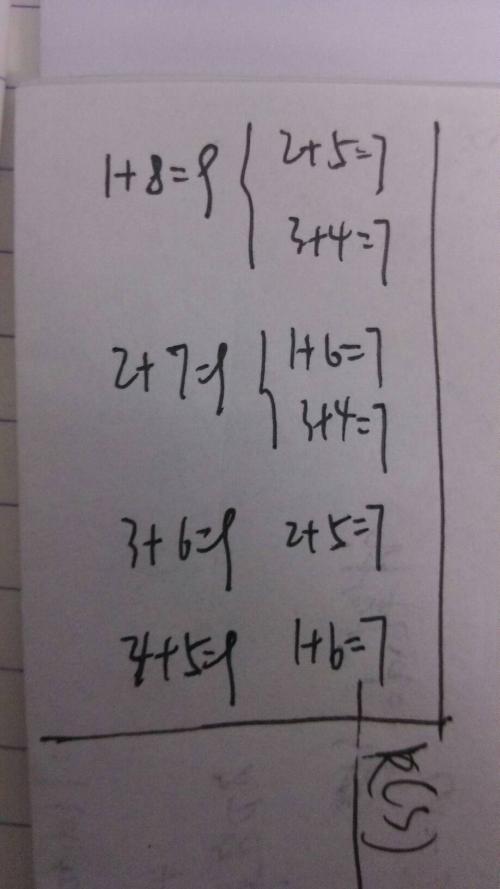 1+8=9 { 2+5=7
3+4=7
2+7=9 { 1+6=7
3+4=7
3+6=9 2+5=7
4+5=9 1+6=7